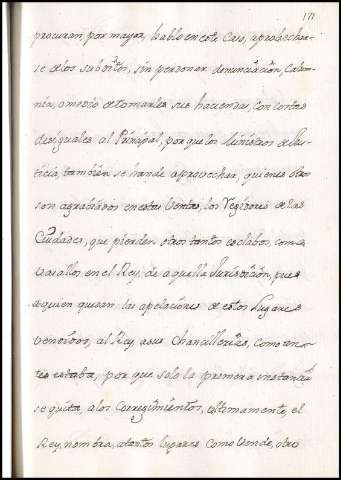 171
procuran, por mayor, hablo en este Caso, aprobechar-
se de los subditos, sin perdonar denunciacion, Calum-
nia, o medio de tomarles sus haciendas, con costas
desiguales al Principal, por que los Ministros de Jus-
ticia, tambien se han de aprovechar, quienes otro
son agrabiados en estas Ventas, los Regidores de las
Ciudades, que pierden otros tantos esclabos, como
Vasallos en el Rey, de aquella Jurisdiccion, pues
aquien quedan las apelaciones de estos Lugares
vendidos, al Rey, a sus Chancillerias, como en-
tes estaba, por que solo la primera instancia
se quita, a los Corregimientos, ultimamente, el
Rey, nombra, atantos lugares como Vende, otro